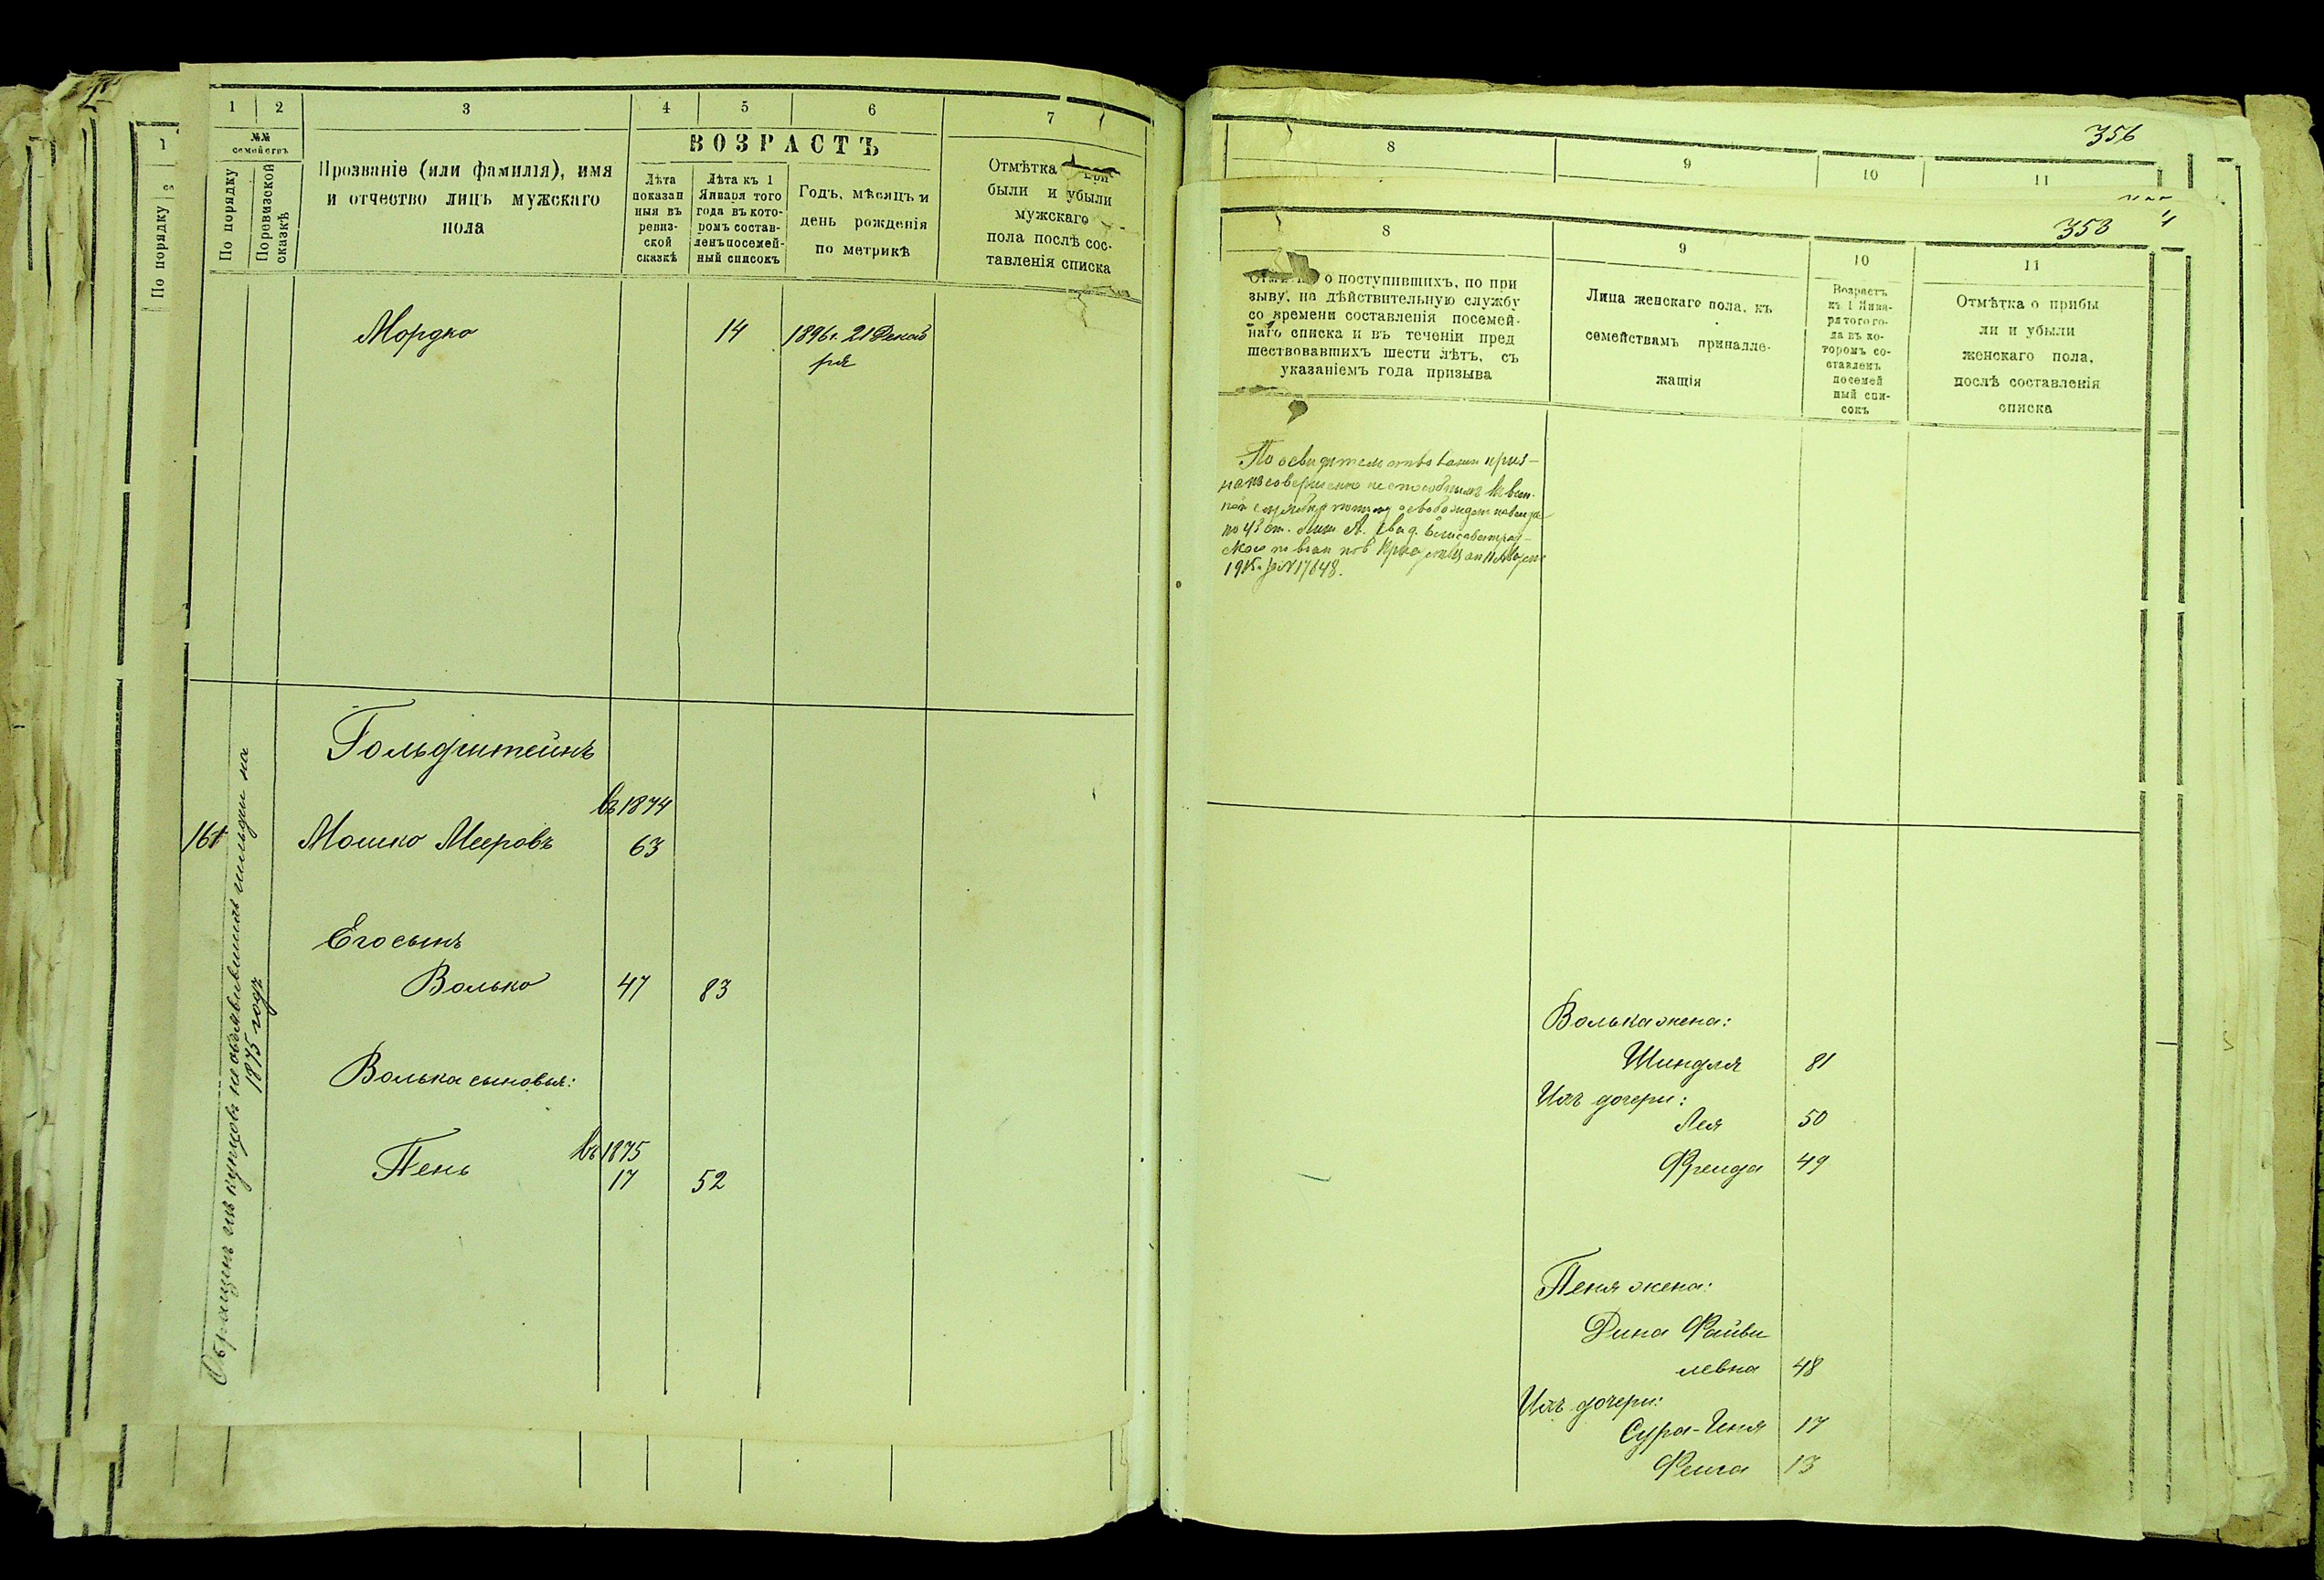 1 2 3 4 5 6 7
№№ семействъ
По порядку
По ревизской сказкѣ
Прозваніе (или фамилія), имя
и отчество лицъ мужскаго
пола
ВОЗРАСТЪ
Лѣта
показан
ныя въ
ревиз-
ской
сказкѣ
Лѣта къ 1
Января того
года въ кото-
ромъ состав-
ленъ посемей-
ный списокъ
Годъ, мѣсяцъ и
день рожденія
по метрикѣ
Отмѣтка при
были и убыли
мужскаго
пола послѣ сос-
тавленія списка
1
По порядку
Мордко 14 1896 г. 21 Декаб
ря
Гольдштейнъ
въ 1874
161 Мошко Мееровъ 63
Его сынъ
Волько 47 83
Волька сыновья:
въ 1875
Пень 17 52
Обращенъ изъ купцовъ необъявившихъ гильдіи на
1875 годъ
356
8 9 10 11
353
8 9 10 11
о поступившихъ, по при
зыву, на дѣйствительную службу
со времени составленія посемей-
наго списка и въ теченіи пред
шествовавшихъ шести лѣтъ, съ
указаніемъ года призыва
Лица женскаго пола, къ
семействамъ принадле-
жащія
Возрастъ
къ 1 Янва-
ря того го-
да въ ко-
торомъ со-
ставленъ
посемей
ный спи-
сокъ
Отмѣтка о прибы
ли и убыли
женскаго пола,
послѣ составленія
списка
По освидетельствованіи приз-
нанъ совершенно неспособнымъ къ воен-
ной службѣ и потому освобожденъ навсегда
по 43 ст. лит А. Свид. Елисаветград-
скаго по воин пов
№ 17648.
Волька жена:
Шиндля 81
Ихъ дочери:
Лея 50
Фрейда 49
Пеня жена:
Дина Файви
левна 48
Ихъ дочери:
Сура-Геня 17
Фейга 13